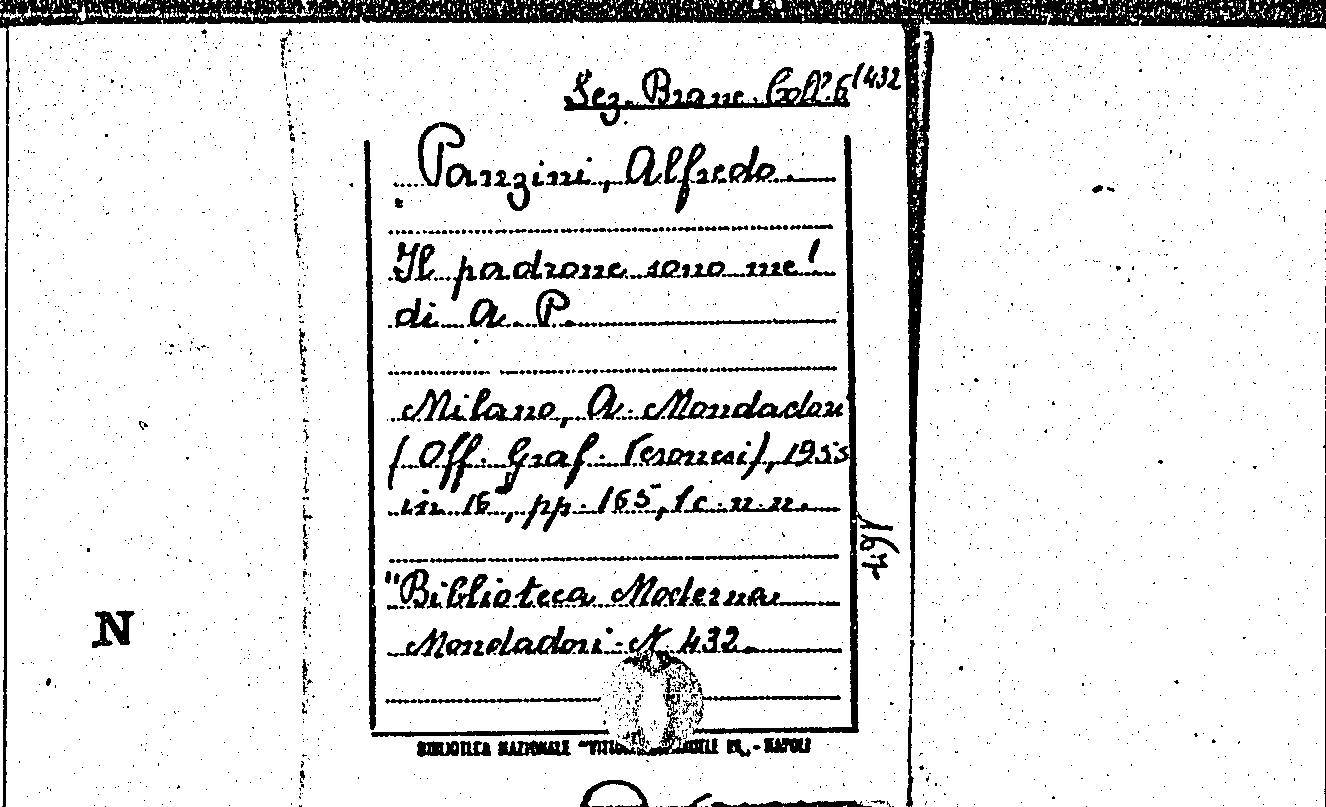 Sez. Branc. Coll. 6/432
Panzini, Alfredo.
Il padrone sono me!
di A. P.
Milano, A. Mondadori
(Off. Graf. Veronesi), 1955
in 16°, pp. 165, 1 c. n. n.
"Biblioteca Moderna
Mondadori - N. 432.
N
BIBLIOTECA NAZIONALE - NAPOLI